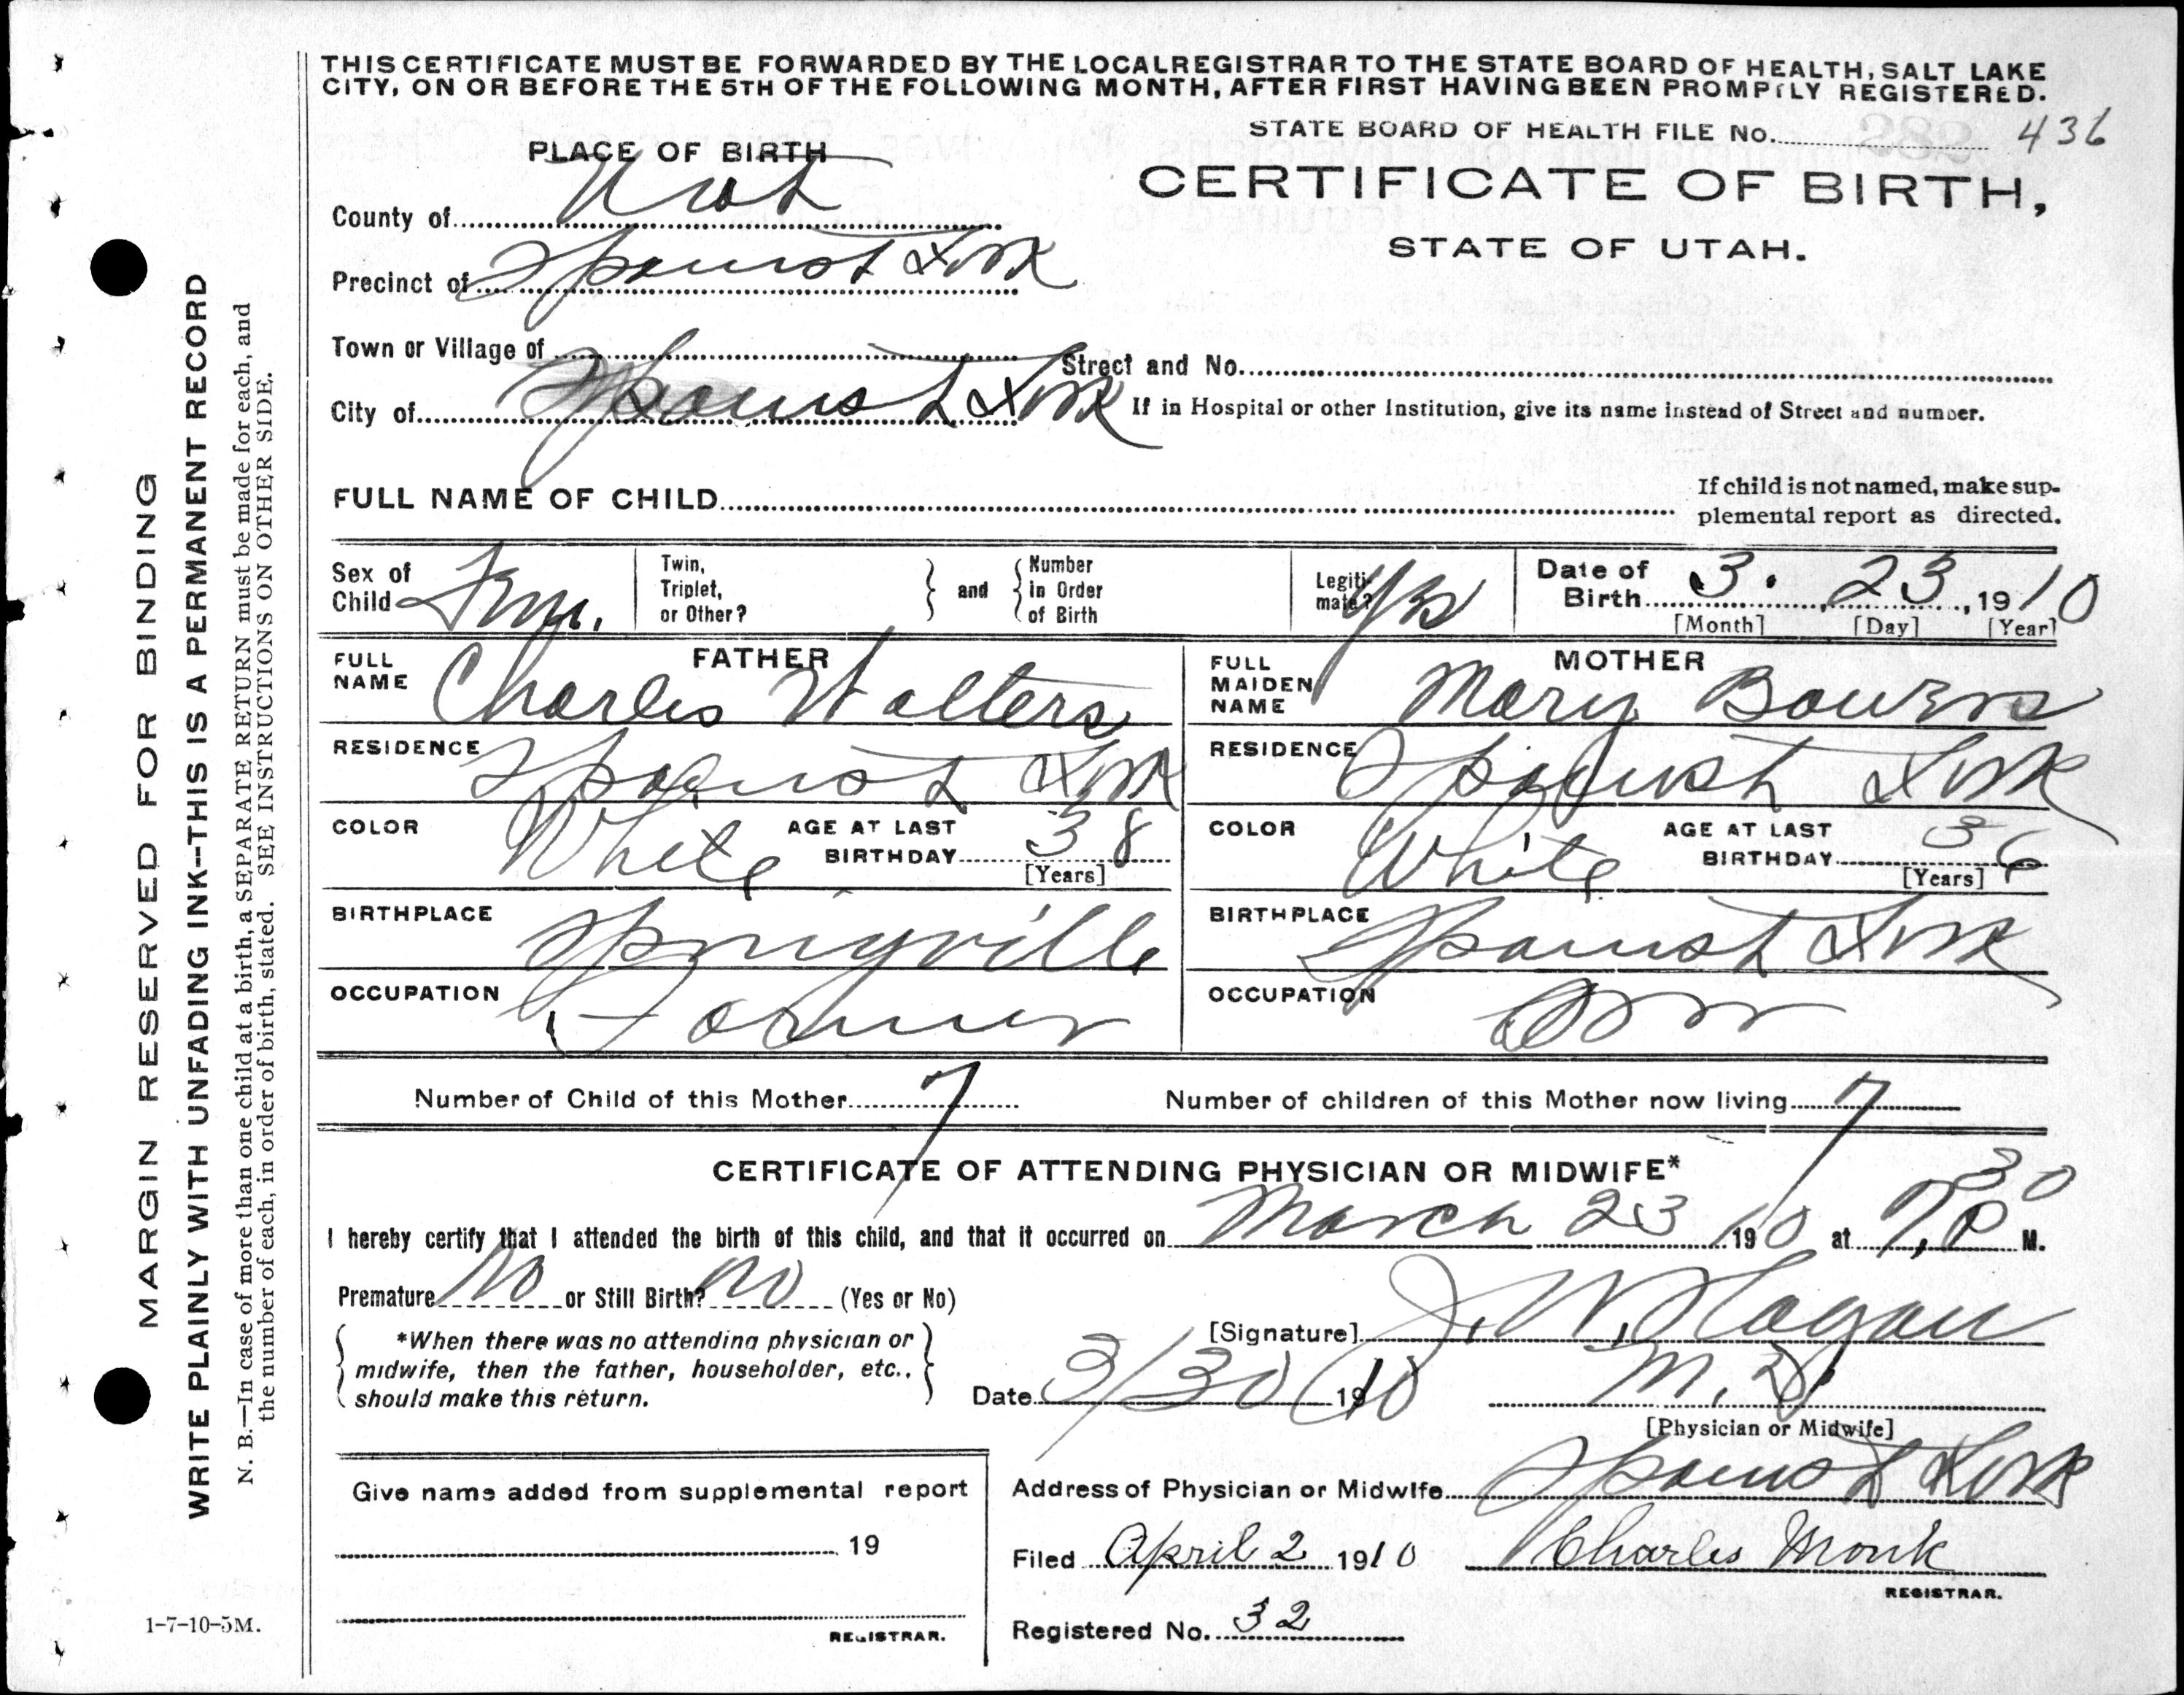 THIS CERTIFICATE MUST BE FORWARDED BY THE LOCAL REGISTRAR TO THE STATE BOARD OF HEALTH, SALT LAKE
CITY, ON OR BEFORE THE 5TH OF THE FOLLOWING MONTH, AFTER FIRST HAVING BEEN PROMPTLY REGISTERED.
STATE BOARD OF HEALTH FILE No. 436
PLACE OF BIRTH
CERTIFICATE OF BIRTH,
STATE OF UTAH.
County of Utah
Precinct of Spanish Fork
Town or Village of
Street and No.
City of Spanish Fork
If in Hospital or other Institution, give its name instead of Street and number.
FULL NAME OF CHILD
If child is not named, make sup-
plemental report as directed.
Sex of
Child Fem.
Twin,
Triplet,
or Other?
and
Number
in Order
of Birth
Legiti-
mate? Yes
Date of
Birth 3. 23, 1910
[Month] [Day] [Year]
FATHER
FULL
NAME Charles Walters
RESIDENCE Spanish Fork
COLOR White AGE AT LAST
BIRTHDAY 38
[Years]
BIRTHPLACE Springville
OCCUPATION Farmer
MOTHER
FULL
MAIDEN
NAME Mary Bowen
RESIDENCE Spanish Fork
COLOR White AGE AT LAST
BIRTHDAY 36
[Years]
BIRTHPLACE Spanish Fork
OCCUPATION
Number of Child of this Mother 7
Number of children of this Mother now living 7
CERTIFICATE OF ATTENDING PHYSICIAN OR MIDWIFE*
I hereby certify that I attended the birth of this child, and that it occurred on March 23 1910 at 7,30 P M.
Premature No or Still Birth? no (Yes or No)
*When there was no attending physician or
midwife, then the father, householder, etc.,
should make this return.
[Signature] J. W. Hagan
Date 3/30 1910 M.D.
[Physician or Midwife]
Give name added from supplemental report
19
REGISTRAR.
Address of Physician or Midwife Spanish Fork
Filed April 2 1910 Charles Monk
REGISTRAR.
Registered No. 32
MARGIN RESERVED FOR BINDING
WRITE PLAINLY WITH UNFADING INK--THIS IS A PERMANENT RECORD
N. B.—In case of more than one child at a birth, a SEPARATE RETURN must be made for each, and
the number of each, in order of birth, stated. SEE INSTRUCTIONS ON OTHER SIDE.
1-7-10-5M.